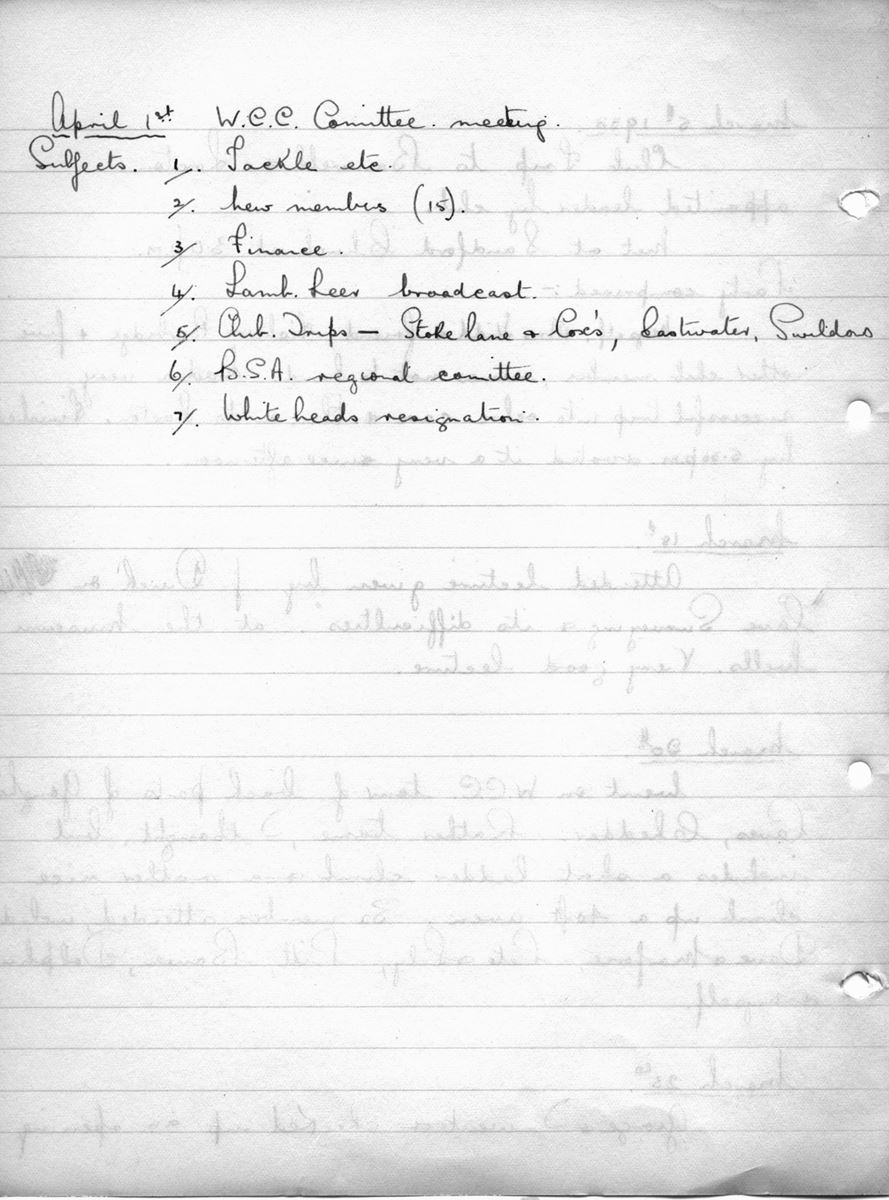 April 1st W.C.C. Comittee. meeting.
Subjects. 1/. Tackle etc.
2/. New members (15).
3/ Finance.
4/. Lamb. Leer broadcast.
5/. Club. Trips — Stoke Lane & Cox's, Eastwater, Swildons
6/. B.S.A. regional comittee.
7/. Whiteheads resignation.